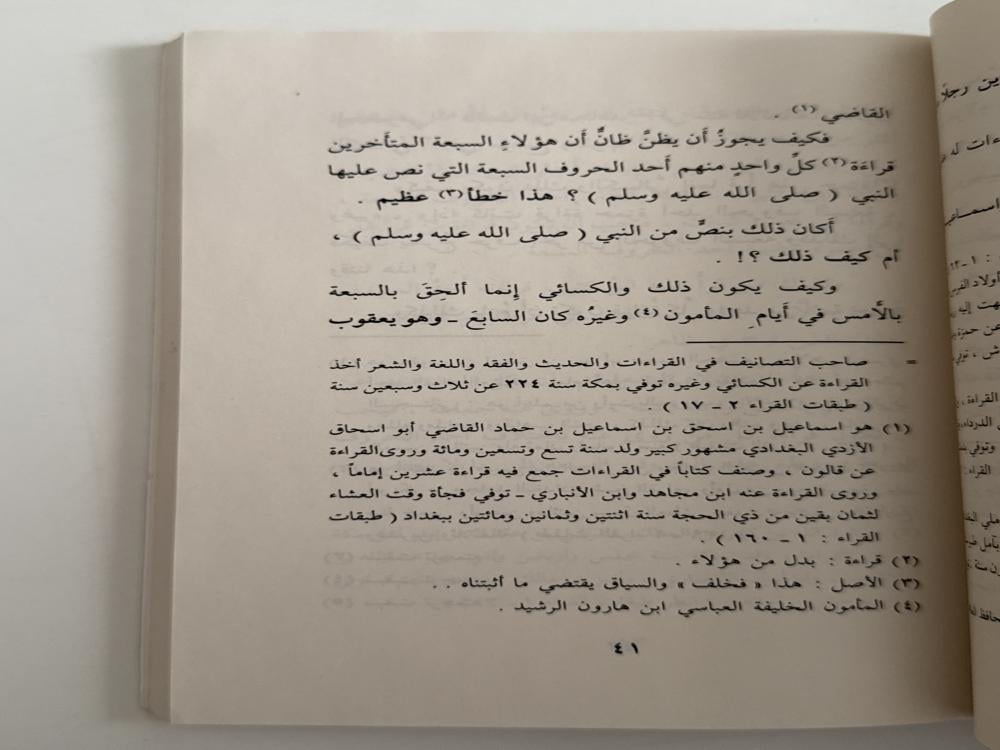 القاضي (١) .
فكيف يجوزُ أَن يظنَّ ظانٌّ أَن هؤلاءِ السبعة المتأخرين
قراءَة (٢) كلِّ واحدٍ منهم أَحد الحروف السبعة التي نص عليها
النبي ( صلى الله عليه وسلم ) ؟ هذا خطأ (٣) عظيم .
أَكان ذلك بنصٍّ من النبي ( صلى الله عليه وسلم ) ،
أم كيف ذلك ؟! .
وكيف يكون ذلك والكسائي إِنما أُلحِقَ بالسبعة
بالأَمس في أَيام المأمون (٤) وغيرُه كان السابعَ ــ وهو يعقوب
= صاحب التصانيف في القراءات والحديث والفقه واللغة والشعر أخذ
القراءة عن الكسائي وغيره توفي بمكة سنة ٢٢٤ عن ثلاث وسبعين سنة
( طبقات القراء ٢ – ١٧ ) .
(١) هو اسماعيل بن اسحق بن اسماعيل بن حماد القاضي أبو اسحاق
الأزدي البغدادي مشهور كبير ولد سنة تسع وتسعين ومائة وروى القراءة
عن قالون ، وصنف كتاباً في القراءات جمع فيه قراءة عشرين إماماً ،
وروى القراءة عنه ابن مجاهد وابن الأنباري ــ توفي فجأة وقت العشاء
لثمان بقين من ذي الحجة سنة اثنتين وثمانين ومائتين ببغداد ( طبقات
القراء : ١ – ١٦٠ ) .
(٢) قراءة : بدل من هؤلاء .
(٣) الأصل : هذا « فخلف » والسياق يقتضي ما أثبتناه . .
(٤) المأمون الخليفة العباسي ابن هارون الرشيد .
٤١